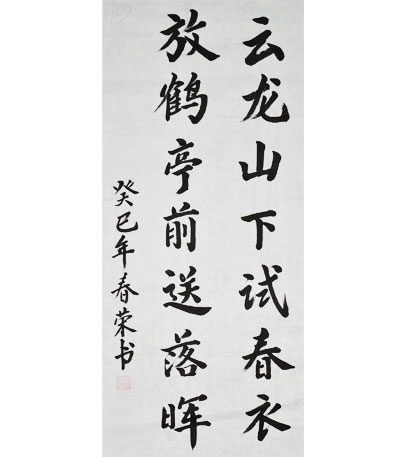 云龙山下试春衣
放鹤亭前送落晖
癸巳年春荣书